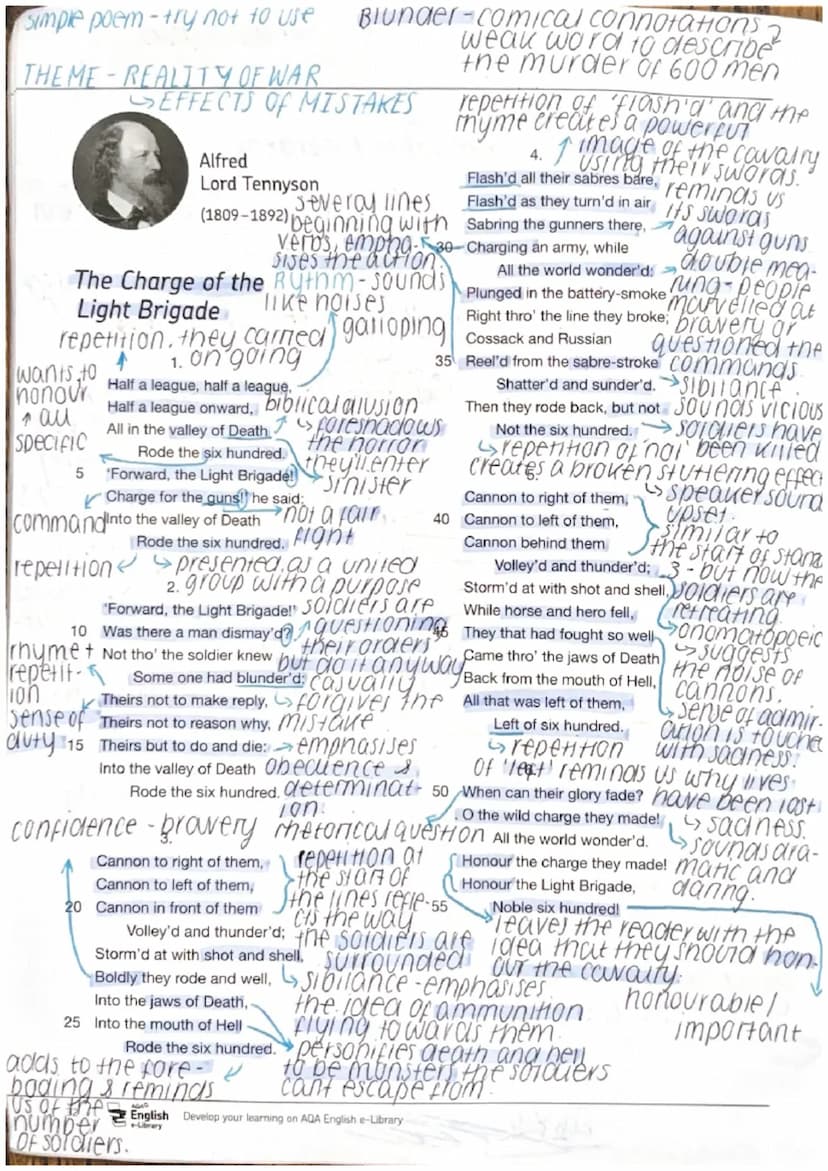 simple poem - try not to use
Blunder - comical connotations
weak word to describe
the murder of 600 men
THEME - REALITY OF WAR
EFFECTS OF MISTAKES
Alfred
Lord Tennyson
(1809–1892)
The Charge of the
Light Brigade
several lines
beginning with
verbs, empha-
sises the action.
Rythm - sounds
like noises
galloping
repetition. they carried
on going
1.
Half a league, half a league,
Half a league onward,
All in the valley of Death
Rode the six hundred.
5 'Forward, the Light Brigade!
Charge for the guns!' he said:
Into the valley of Death
Rode the six hundred.
wants to
honour
all
specific
biblical allusion
foreshadows
the horror
they'll enter
sinister
command
not a fair
fight
repetition
presented as a united
group with a purpose
2.
'Forward, the Light Brigade!'
10 Was there a man dismay'd?
Not tho' the soldier knew
Some one had blunder'd:
Theirs not to make reply,
Theirs not to reason why,
15 Theirs but to do and die:
Into the valley of Death
Rode the six hundred.
soldiers are
questioning
their orders
but do it anyway
casually
forgives the
mistake
rhyme +
repetit-
ion
sense of
duty
emphasises
obedience &
determinat-
ion.
confidence - bravery
3.
Cannon to right of them,
Cannon to left of them,
20 Cannon in front of them
Volley'd and thunder'd;
Storm'd at with shot and shell,
Boldly they rode and well,
Into the jaws of Death,
25 Into the mouth of Hell
Rode the six hundred.
repetition at
the start of
the lines refle-
cts the way
the soldiers are
surrounded
sibilance - emphasises
the idea of ammunition
flying towards them.
personifies death and hell
to be monsters the soldiers
cant escape from.
adds to the fore-
boding & reminds
us of the
number
of soldiers.
repetition of 'flash'd' and the
rhyme creates a powerful
image of the cavalry
using their swords.
4.
Flash'd all their sabres bare,
Flash'd as they turn'd in air
Sabring the gunners there,
30 Charging an army, while
All the world wonder'd:
Plunged in the battery-smoke
Right thro' the line they broke;
Cossack and Russian
35 Reel'd from the sabre-stroke
Shatter'd and sunder'd.
Then they rode back, but not
Not the six hundred.
reminds us
its swords
against guns
double mea-
ning - people
marvelled at
bravery or
questioned the
commands
sibilance.
sounds vicious
soldiers have
been killed
repetition of 'not'
creates a broken stuttering effect
speaker sound
upset.
5.
Cannon to right of them,
40 Cannon to left of them,
Cannon behind them
Volley'd and thunder'd;
Storm'd at with shot and shell,
While horse and hero fell,
45 They that had fought so well
Came thro' the jaws of Death
Back from the mouth of Hell,
All that was left of them,
Left of six hundred.
similar to
the start of stanz
3 - but now the
soldiers are
retreating.
onomatopoeic
suggests
the noise of
cannons.
sense of admir-
ation is touched
with sadness.
repetition
of 'left' reminds us why lives
have been lost
50 When can their glory fade?
O the wild charge they made!
All the world wonder'd.
Honour the charge they made!
Honour the Light Brigade,
55 Noble six hundred!
rhetorical question
sadness.
sounds dra-
matic and
daring.
leaves the reader with the
idea that they should hon-
our the cavalry.
honourable/
important
AQA
English
e-Library
Develop your learning on AQA English e-Library